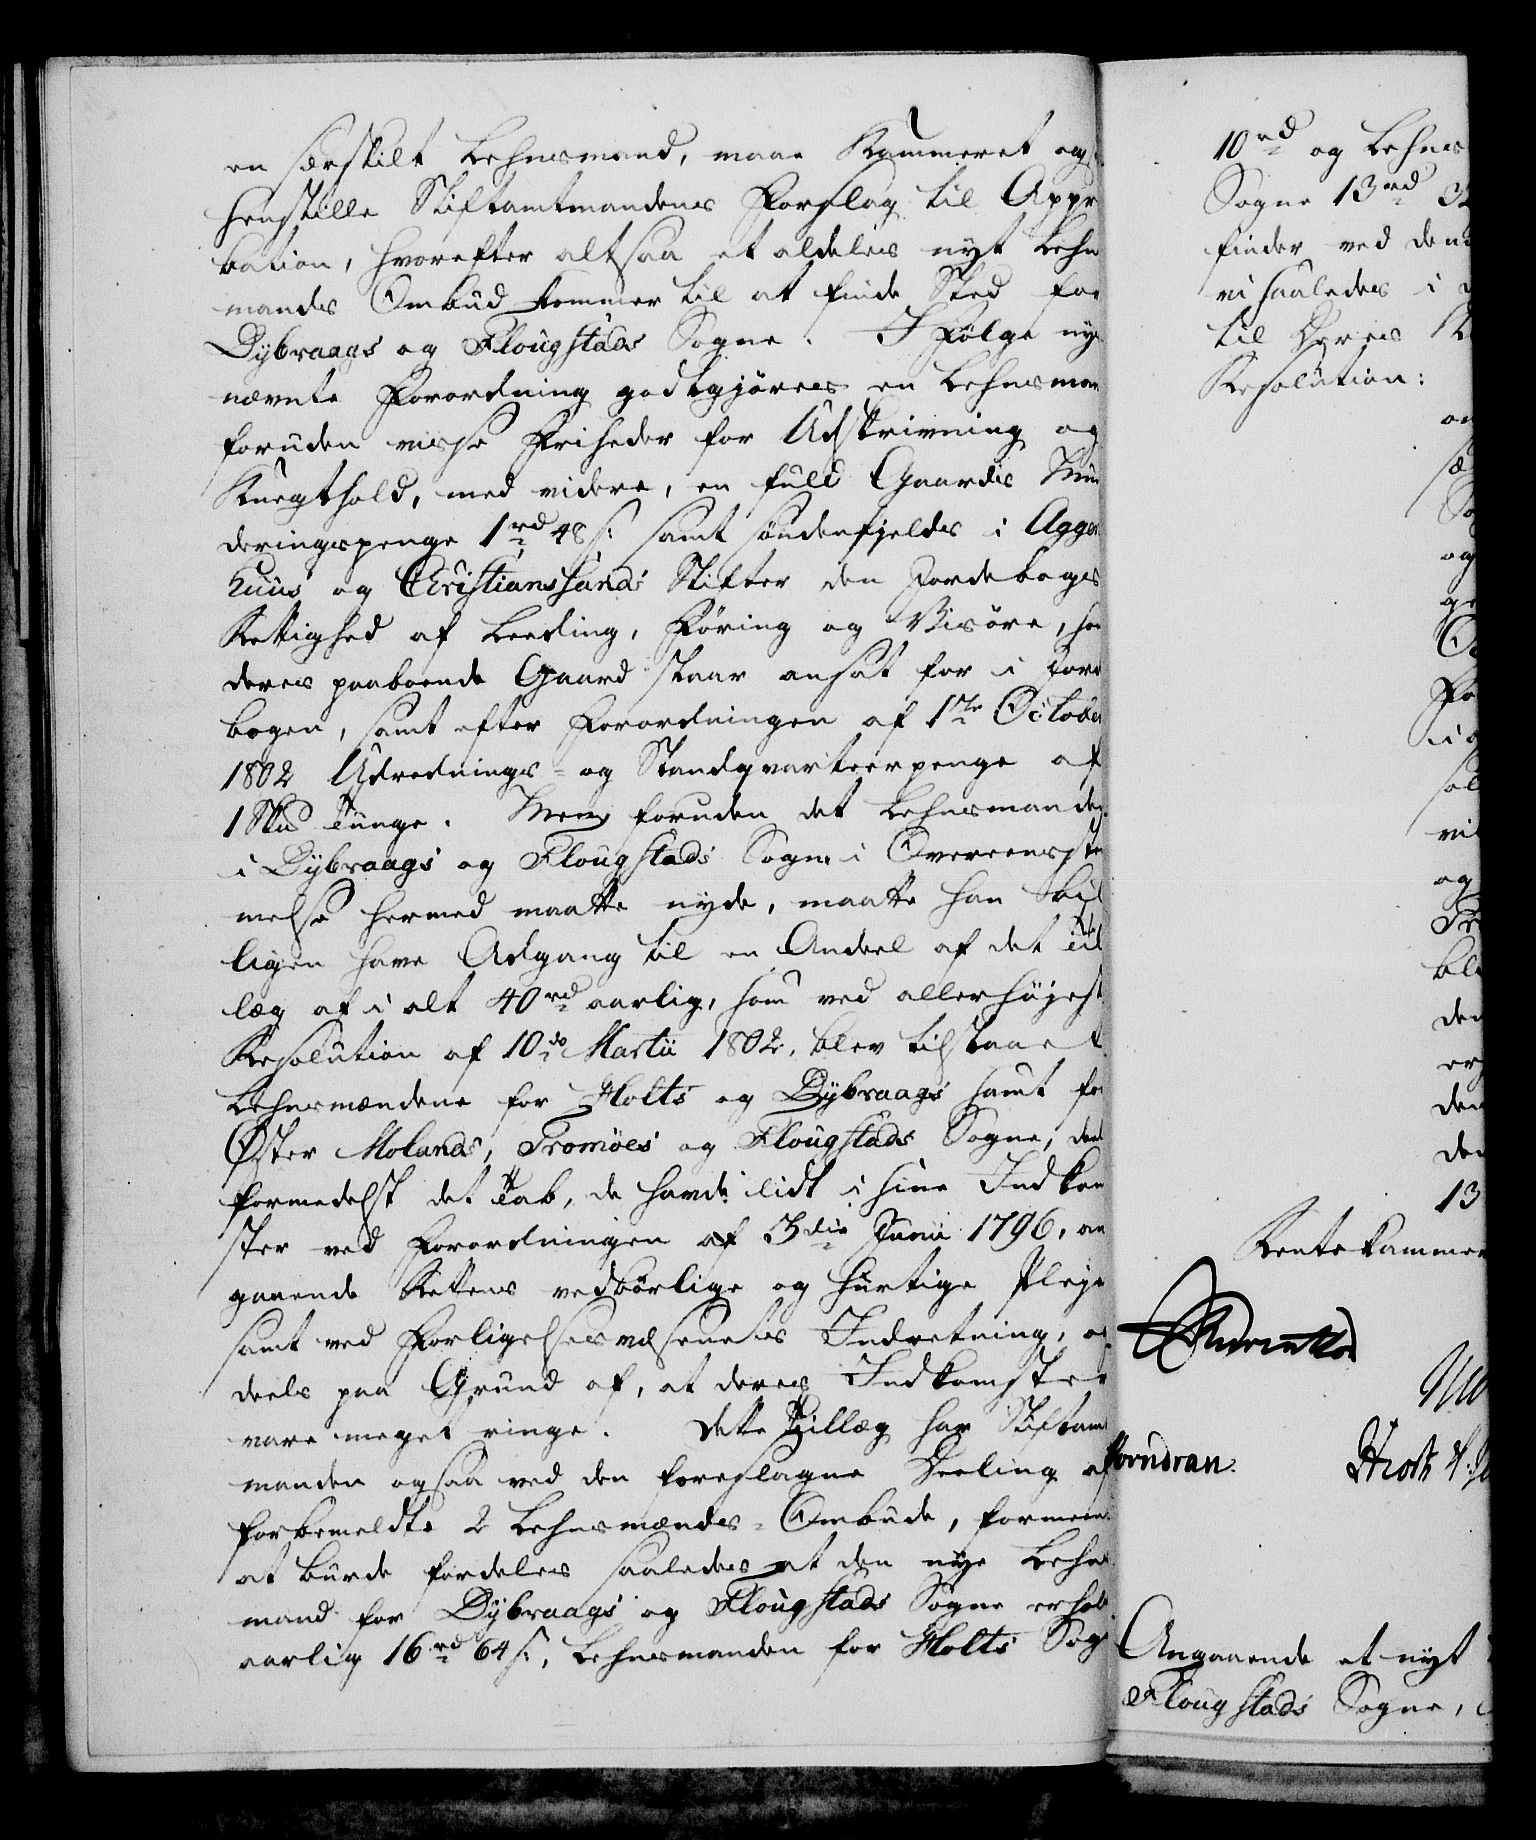 en særskilt Lehnsmand, maae Kammeret og
henstille Stiftamtmandens Forslag til Appr
bation, hvorefter altsaa et aldeles nyt Lehn
mands Ombud kommer til at finde Sted for
Dÿbvaags og Flougstads Sogne. I Følge ny
nævnte Forordning godtgjøres en Lehnsman
foruden visse Friheder for Udskrivning og
Knegthold, med videre, en fuld Gaards Mun
deringspenge 1 rd 48 s: samt søndenfjelds i Agger
huus og Christianssands Stifter den Jordebogs
Rettighed af Leeding, Føring og Visøre, so
deres paaboende Gaard staar ansat for i Jord
bogen, samt efter Forordningen af 1ste October
1802 Udrednings- og Standqvarteerpenge af
1 Skd Tunge. Men foruden det Lehnsmanden
i Dÿbvaags og Flougstads Sogne i Overeensste
melse hermed maatte nyde, maatte han bil
ligen have Adgang til en Andeel af det Til
læg af i alt 40 rd aarlig, som ved allerhøjest
Resolution af 10de Martii 1802, blev tilstaaet
Lehnsmændene for Holts og Dÿbvaags samt fo
Øster Molands, Tromøes og Flougstads Sogne, deels
formedelst det Tab, de havde lidt i sine Indkom
ster ved Forordningen af 3die Junii 1796, an
gaaende Rettens vedbørlige og hurtige Pleje
samt ved Forligelsesvæsenets Indretning, og
deels paa Grund af, at deres Indkomster
vare meget ringe. Dette Tillæg har Stiftamt
manden ogsaa ved den foreslagne Deeling af
forbemeldte 2 Lehnsmænds-Ombude, formeent
at burde fordeles saaledes at den nye Lehns
mand for Dÿbvaags og Flougstads Sogne erholdt
aarlig 16 rd 64 s:, Lehnsmanden for Holts Sogn
10 rd og Lehns
Sogne 13 rd 32
finder ved den
vi saaledes i
til Deres
Resolution:
og
Rentekammer
Angaaende et nyt
Flougstads Sogne,